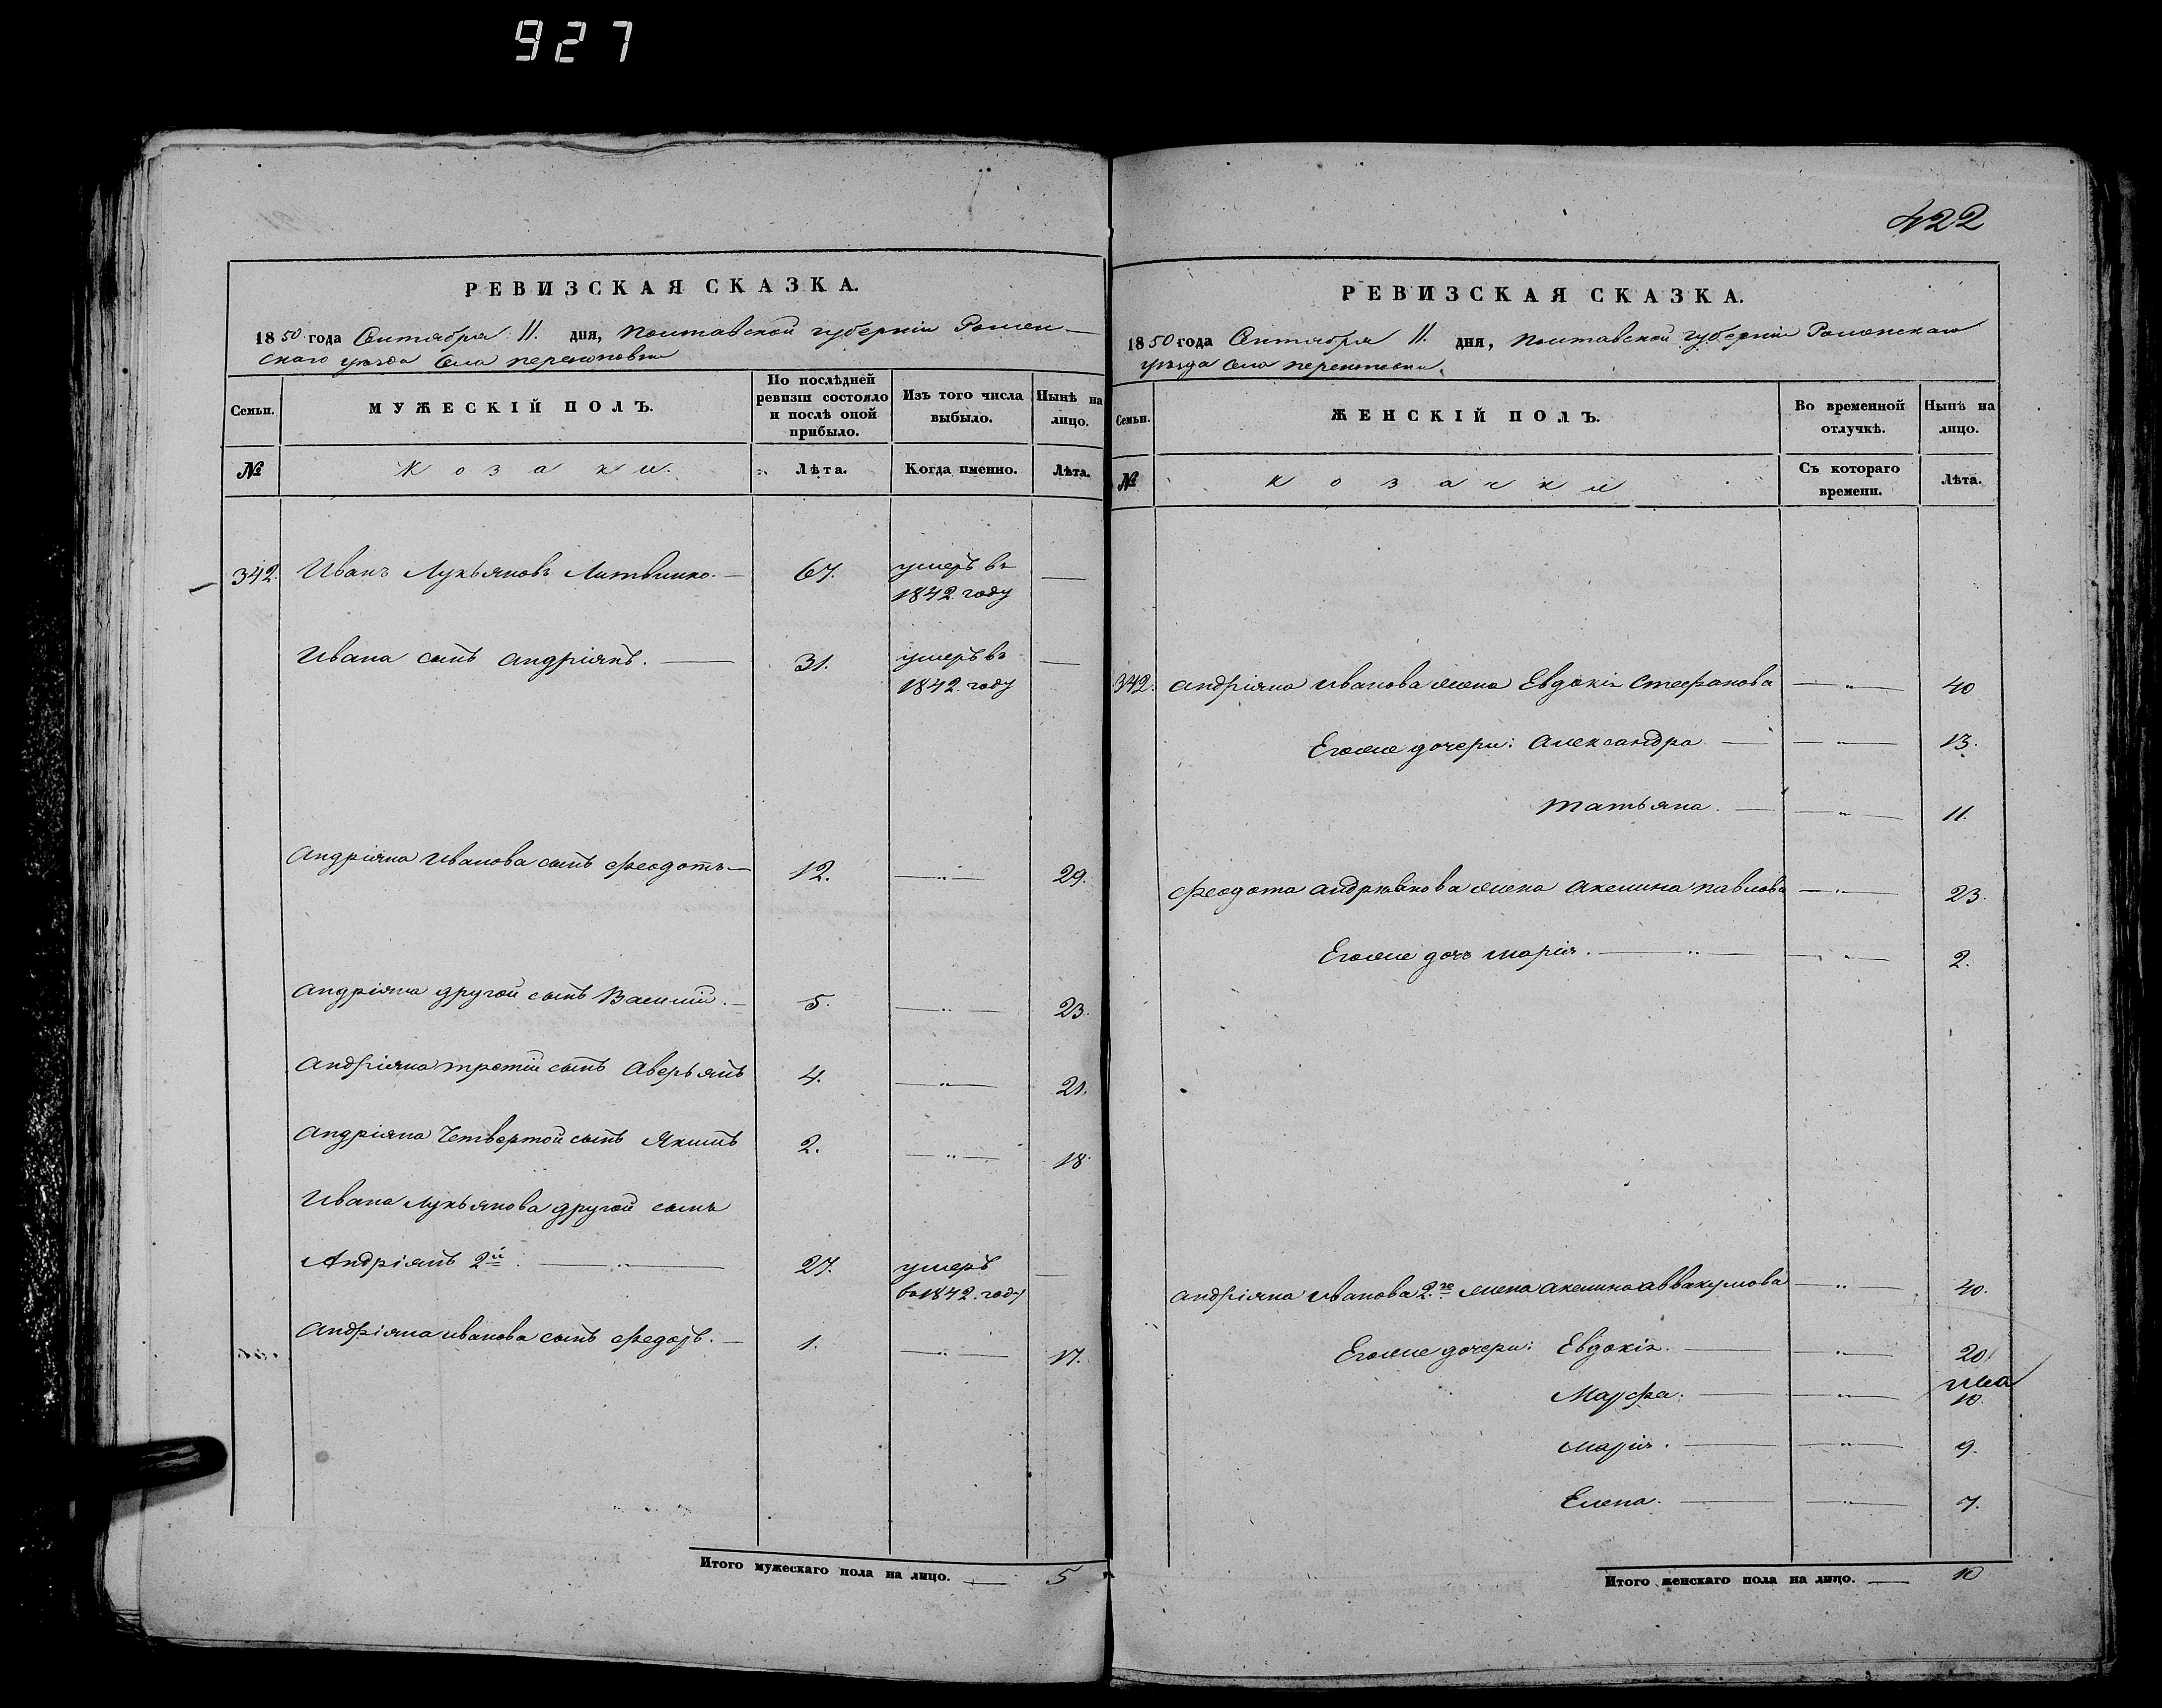 927
РЕВИЗСКАЯ СКАЗКА.
1850 года Сентября 11. дня, Полтавской губерніи Ромен-
скаго уѣзда села Перекоповки
Семьи.
МУЖЕСКІЙ ПОЛЪ.
По послѣдней
ревизіи состояло
и послѣ оной
прибыло.
Изъ того числа
выбыло.
Нынѣ на
лицо.
№
Козаки.
Лѣта.
Когда именно.
Лѣта.
342. Иванъ Лукьяновъ Литвинко. — 67. умеръ въ —
1842. году
Ивана сынъ Андріянъ. — 31. умеръ въ —
1842. году
Андріяна Иванова сынъ Феодотъ — 12. — „ — 29.
Андріяна другой сынъ Василій. — 5. — „ — 23.
Андріяна третій сынъ Аверьянъ 4. — „ — 21.
Андріяна Четвертой сынъ Якимъ 2. — „ — 18.
Ивана Лукьянова другой сынъ
Андріянъ 2й. — „ — 27. умеръ —
въ 1842. году
Андріяна Иванова сынъ Федоръ. — 1. — „ — 17.
Итого мужескаго пола на лицо. — 5
422
РЕВИЗСКАЯ СКАЗКА.
1850 года Сентября 11. дня, Полтавской Губерніи Роменскаго
уѣзда села Перекоповки.
Семьи.
ЖЕНСКІЙ ПОЛЪ.
Во временной
отлучкѣ.
Нынѣ на
лицо.
№
Козачки
Съ котораго
времени.
Лѣта.
342. Андріяна Иванова жена Евдокія Стефанова — „ — 40
Егоже дочери: Александра — — „ — 13.
Татьяна. — — „ — 11.
Феодота Андріянова жена Акилина Павлова — „ — 23.
Егоже дочь Марія. — „ — — „ — 2.
Андріяна Иванова 2го жена Акилина Аввакумова — „ — 40.
Егоже дочери: Евдокія. — — „ — 20.
Марфа. — — „ — 10.
Марія. — — „ — 9.
Елена. — — „ — 7.
Итого женскаго пола на лицо. — 10